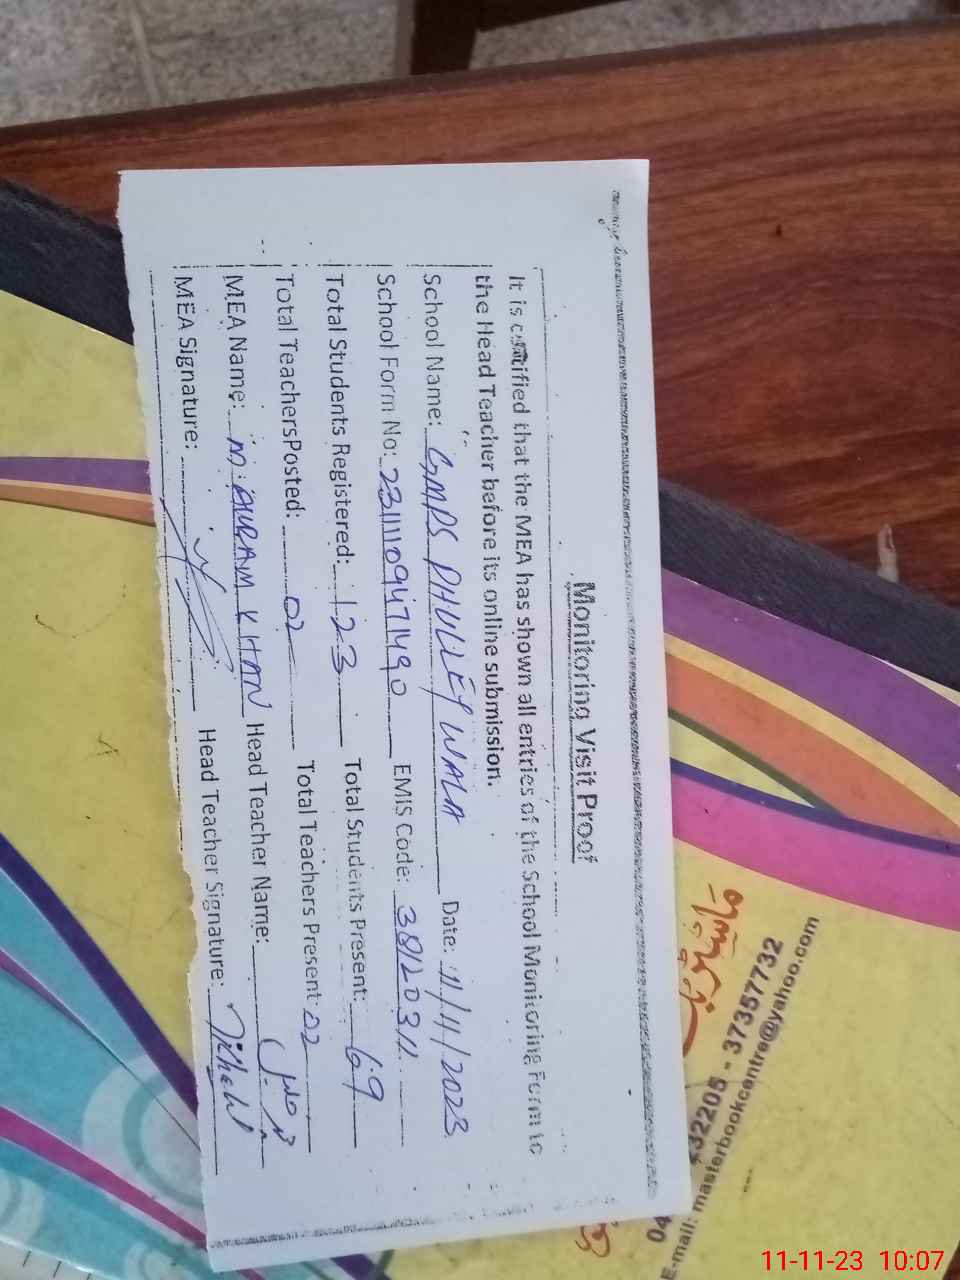 Monitoring Visit Proof
It is certified that the MEA has shown all entries of the School Monitoring Form to
the Head Teacher before its online submission.
School Name: GMPS PHULLEY WALA Date: 11/11/2023
School Form No: EMIS Code: 38120311
Total Students Registered: 123 Total Students Present: 69
Total TeachersPosted: 02 Total Teachers Present 02
MEA Name: M. AKRAM KHAN Head Teacher Name:
MEA Signature: Head Teacher Signature:
32205 - 37357732
E-mail: masterbookcentre@yahoo.com
11-11-23 10:07